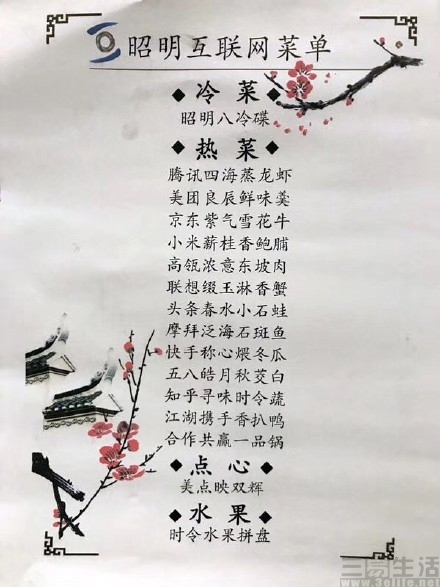 昭明互联网菜单
◆冷菜◆
昭明八冷碟
◆热菜◆
腾讯四海蒸龙虾
美团良辰鲜味羹
京东紫气雪花牛
小米薪桂香鲍脯
高瓴浓意东坡肉
联想缀玉淋香蟹
头条春水小石蛙
摩拜泛海石斑鱼
快手称心煨冬瓜
五八皓月秋茭白
知乎寻味时令蔬
江湖携手香扒鸭
合作共赢一品锅
◆点心◆
美点映双辉
◆水果◆
时令水果拼盘
三易生活
www.3elife.net